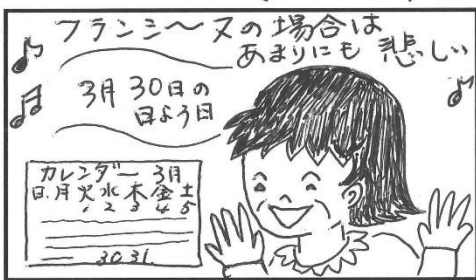 フランシ〜ヌの場合は
あまりにも悲しい
3月30日の
日よう日
カレンダー 3月
日.月火水木金土
1 2 3 4 5
30 31